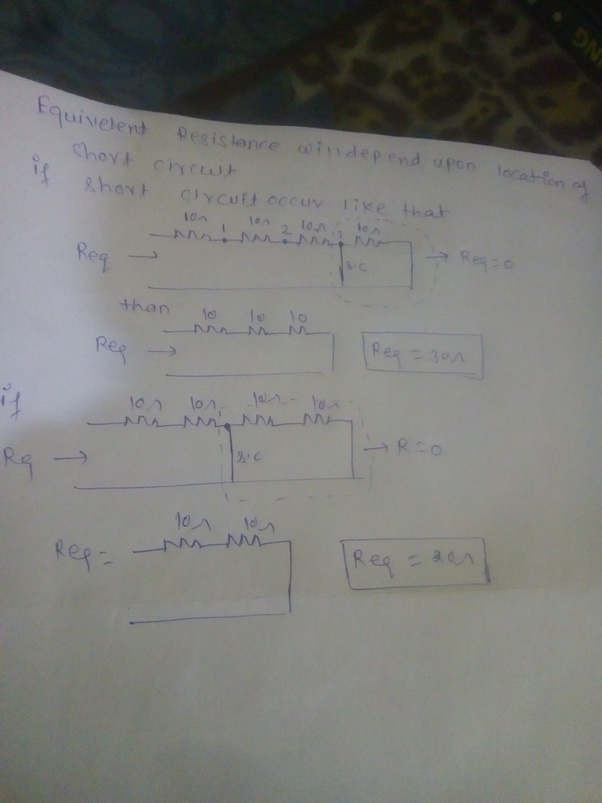 Equivelent Resistance will depend upon location of
short circuit
if short circuit occur like that
10Ω 1 10Ω 2 10Ω 3 10Ω
Req → s.c → Req=0
than
10 10 10
Req → Req = 30Ω
if
10Ω 10Ω 10Ω 10Ω
Rq → s.c → R=0
10Ω 10Ω
Req = Req = 20Ω